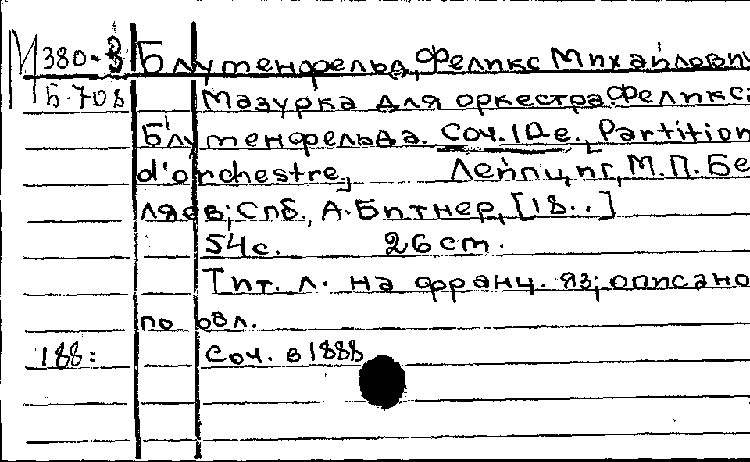 М380-3 Блуменфельд, Феликс Михайлович
Б.708 Мазурка для оркестра Феликса
Блуменфельда. Соч. 10е. Partition
d'orchestre,
Лейпциг, М.П. Бе
ляев; Спб., А. Битнер, [18..]
54с. 26cm.
Тит. л. на франц. яз; описано
по обл.
188: Соч. в 1888